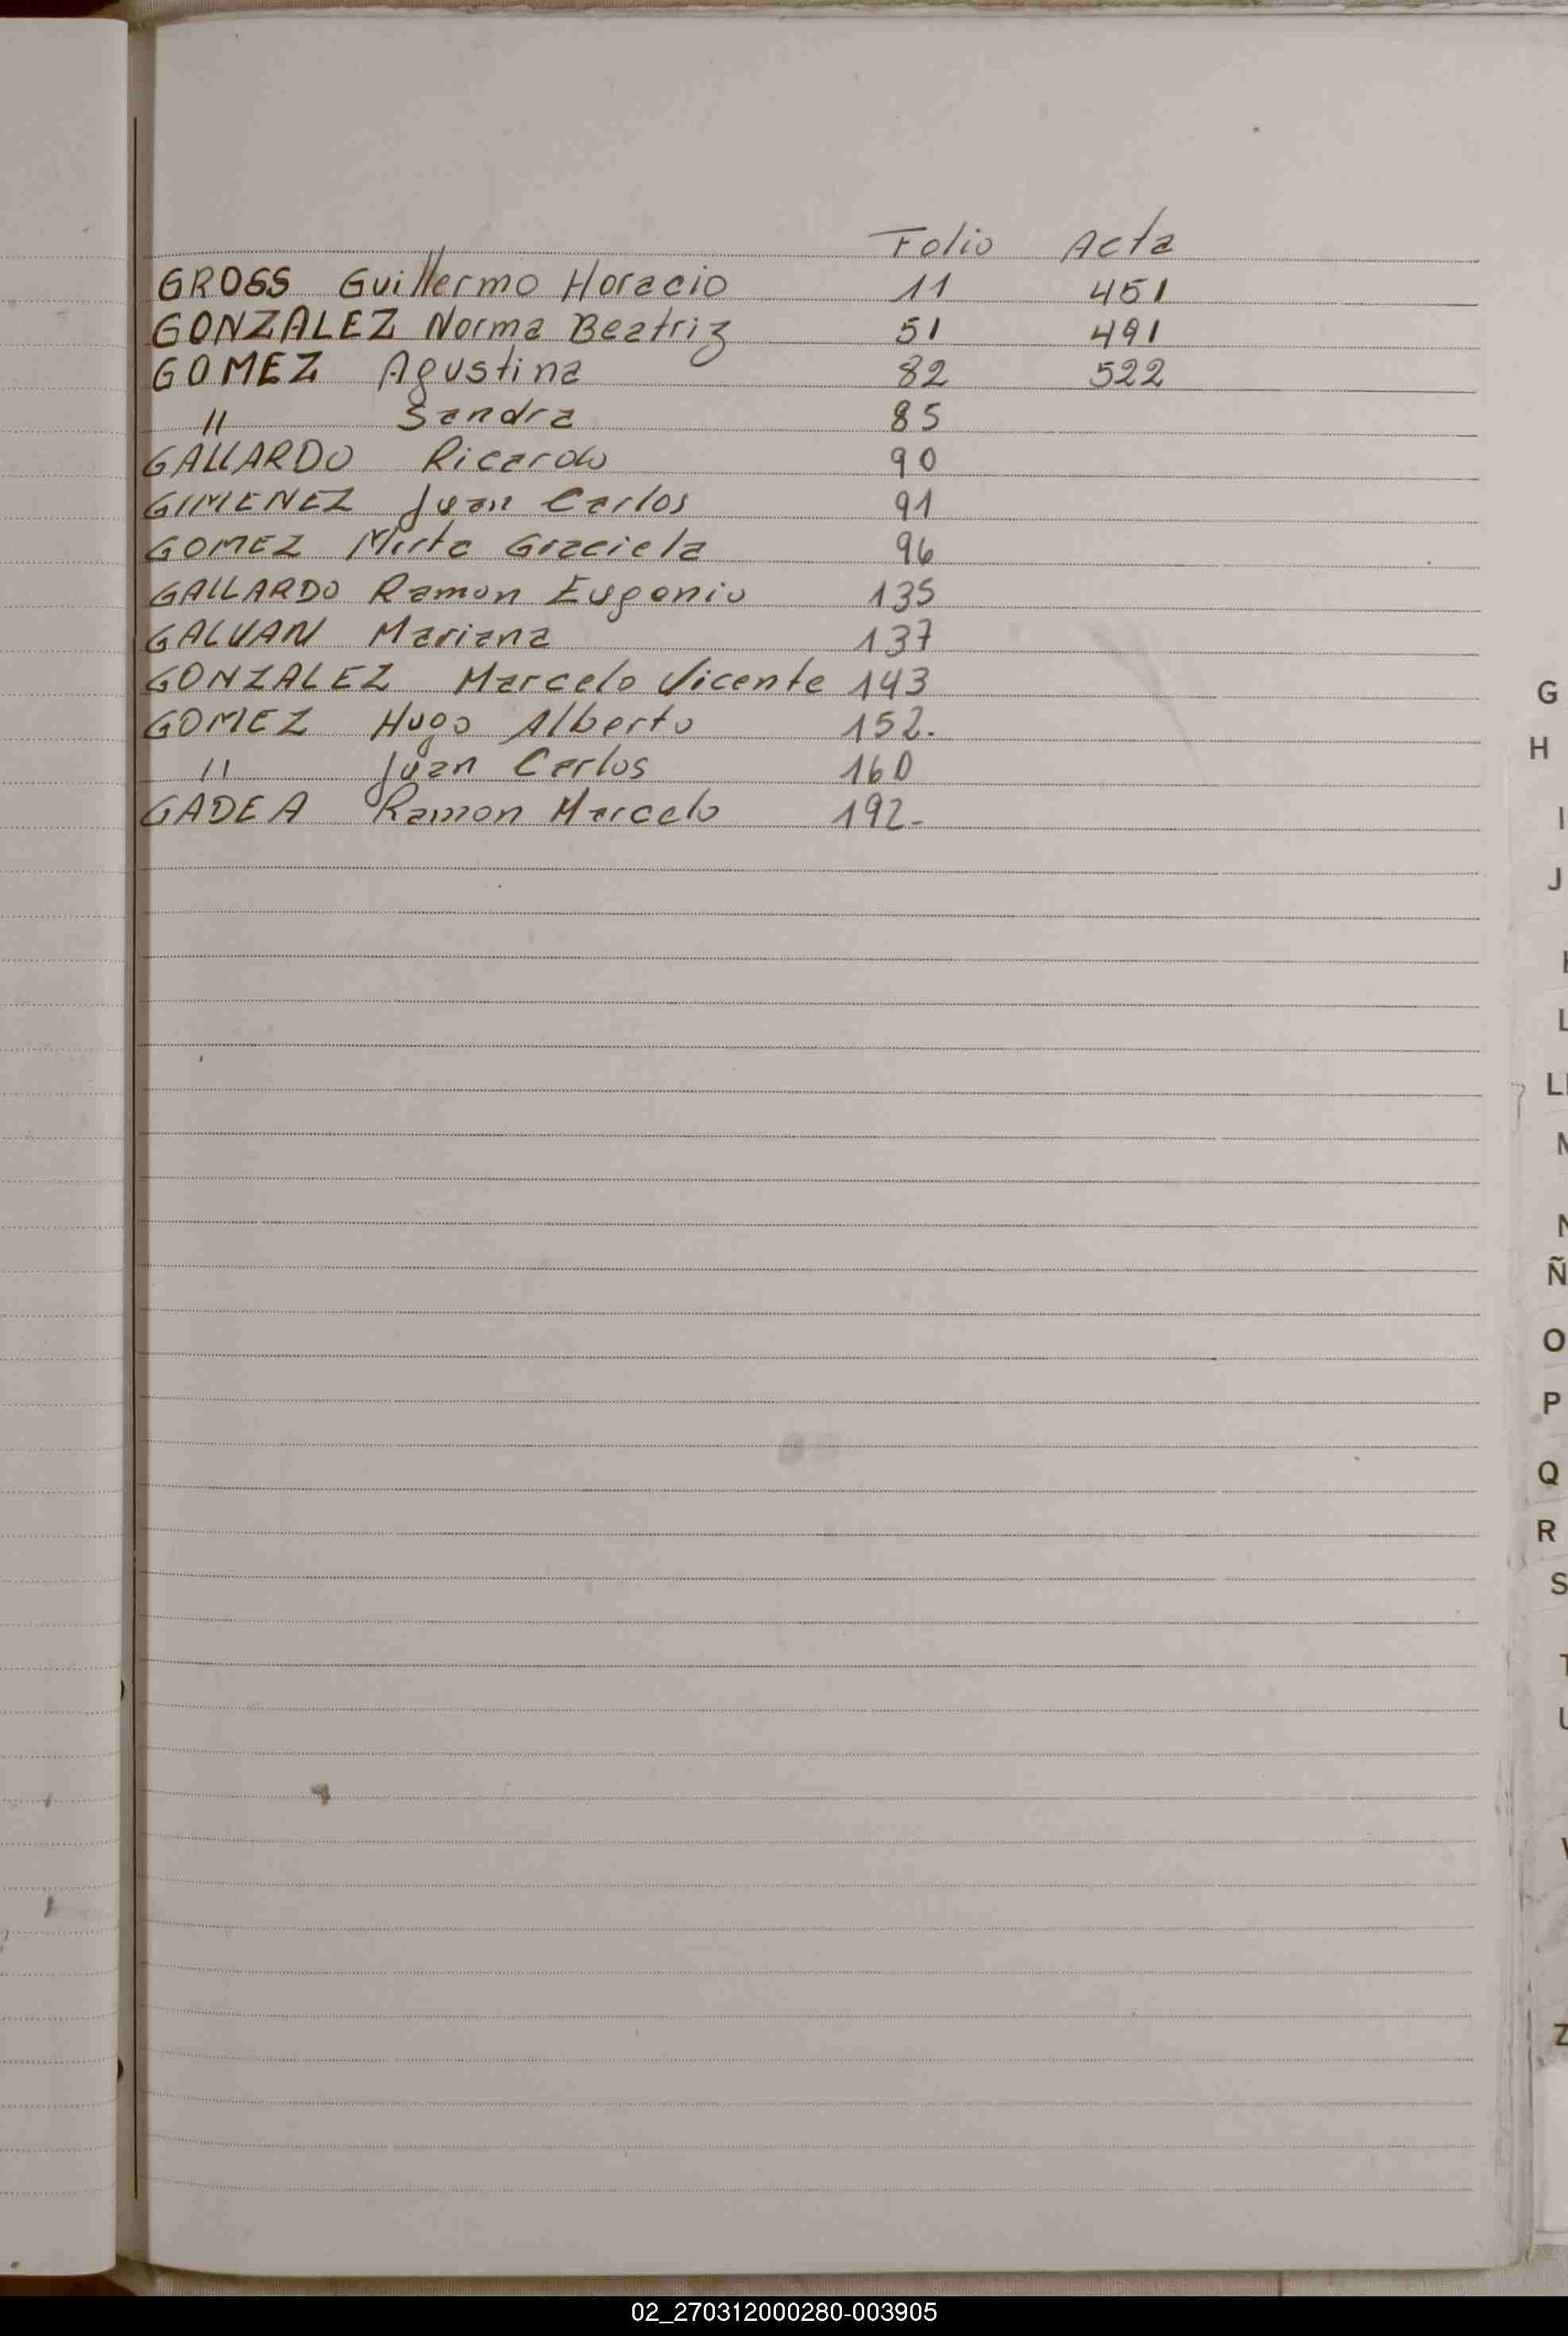 Folio Acta
GROSS Guillermo Horacio 11 451
GONZALEZ Norma Beatriz 51 491
GOMEZ Agustina 82 522
" Sandra 85
GALLARDO Ricardo 90
GIMENEZ Juan Carlos 91
GOMEZ Mirta Graciela 96
GALLARDO Ramon Eugenio 135
GALVAN Mariana 137
GONZALEZ Marcelo Vicente 143
GOMEZ Hugo Alberto 152.
" Juan Carlos 160
GADEA Ramon Marcelo 192-
G
H
I
J
L
M
N
Ñ
O
P
Q
R
S
T
U
Z
02_270312000280-003905